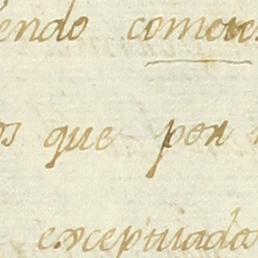 endo comerc
os que por
exceptuado